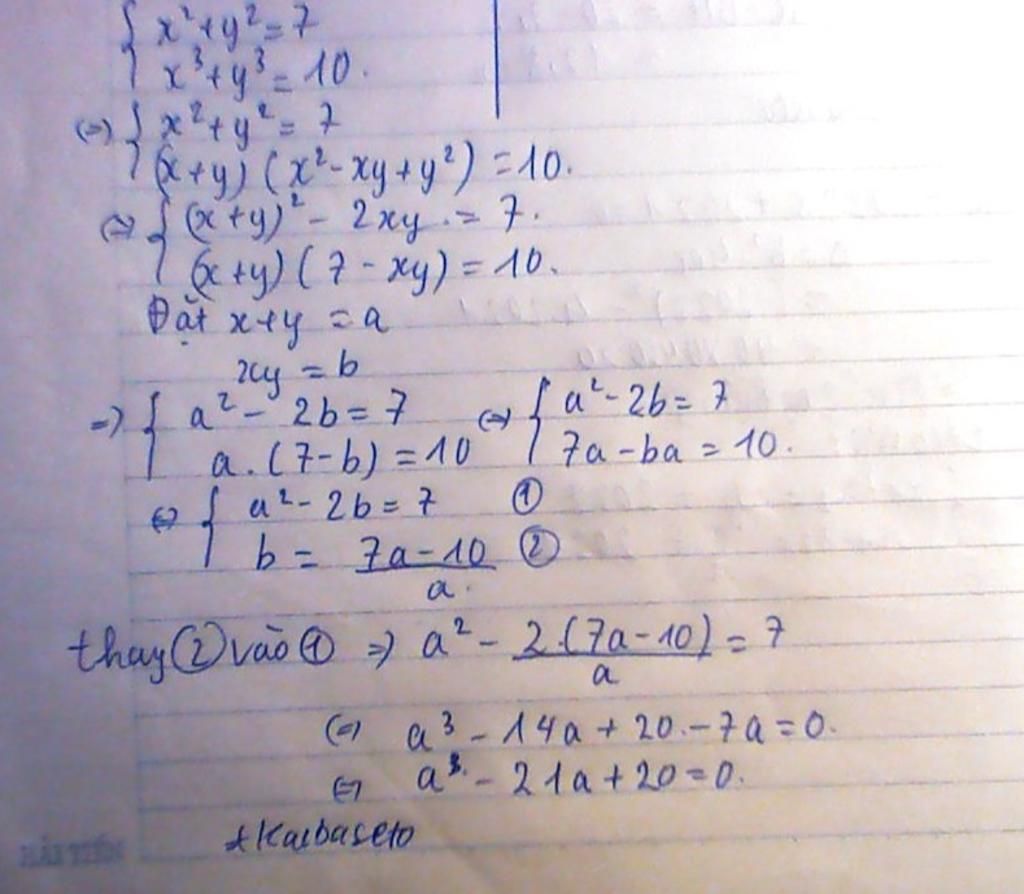 { x²+y²=7
x³+y³=10.
(=) { x²+y²=7
(x+y)(x²-xy+y²)=10.
(=) { (x+y)²-2xy.=7.
(x+y)(7-xy)=10.
Đặt x+y=a
xy=b
=) { a²-2b=7 (=) { a²-2b=7
a.(7-b)=10 7a-ba=10.
(=) { a²-2b=7 ①
b=(7a-10)/a. ②
thay ② vào ① =) a²-2.(7a-10)/a=7
(=) a³-14a+20.-7a=0.
(=) a³.-21a+20=0.
HẢI TIẾN